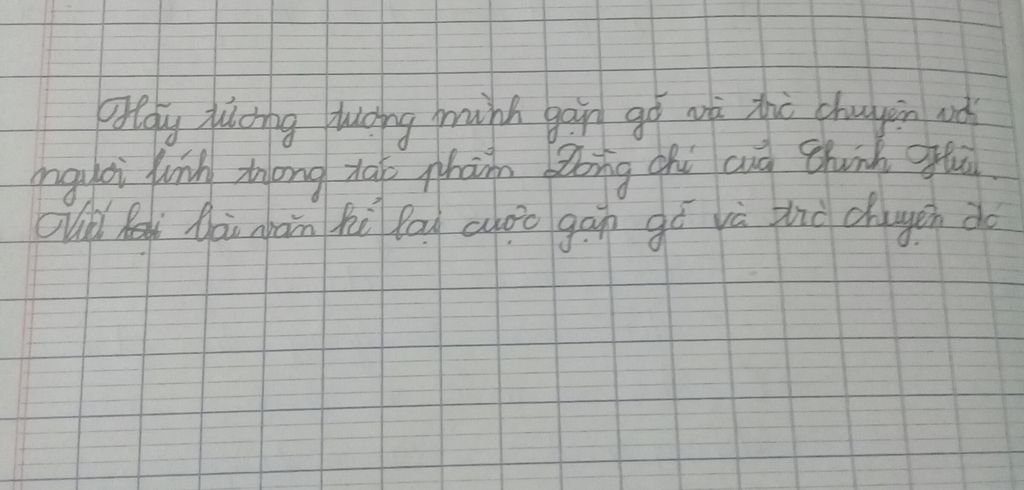 Hãy tưởng tượng mình gặp gỡ và trò chuyện với
người lính trong tác phẩm Đồng chí của Chính Hữu.
Viết bài văn kể lại cuộc gặp gỡ và trò chuyện đó